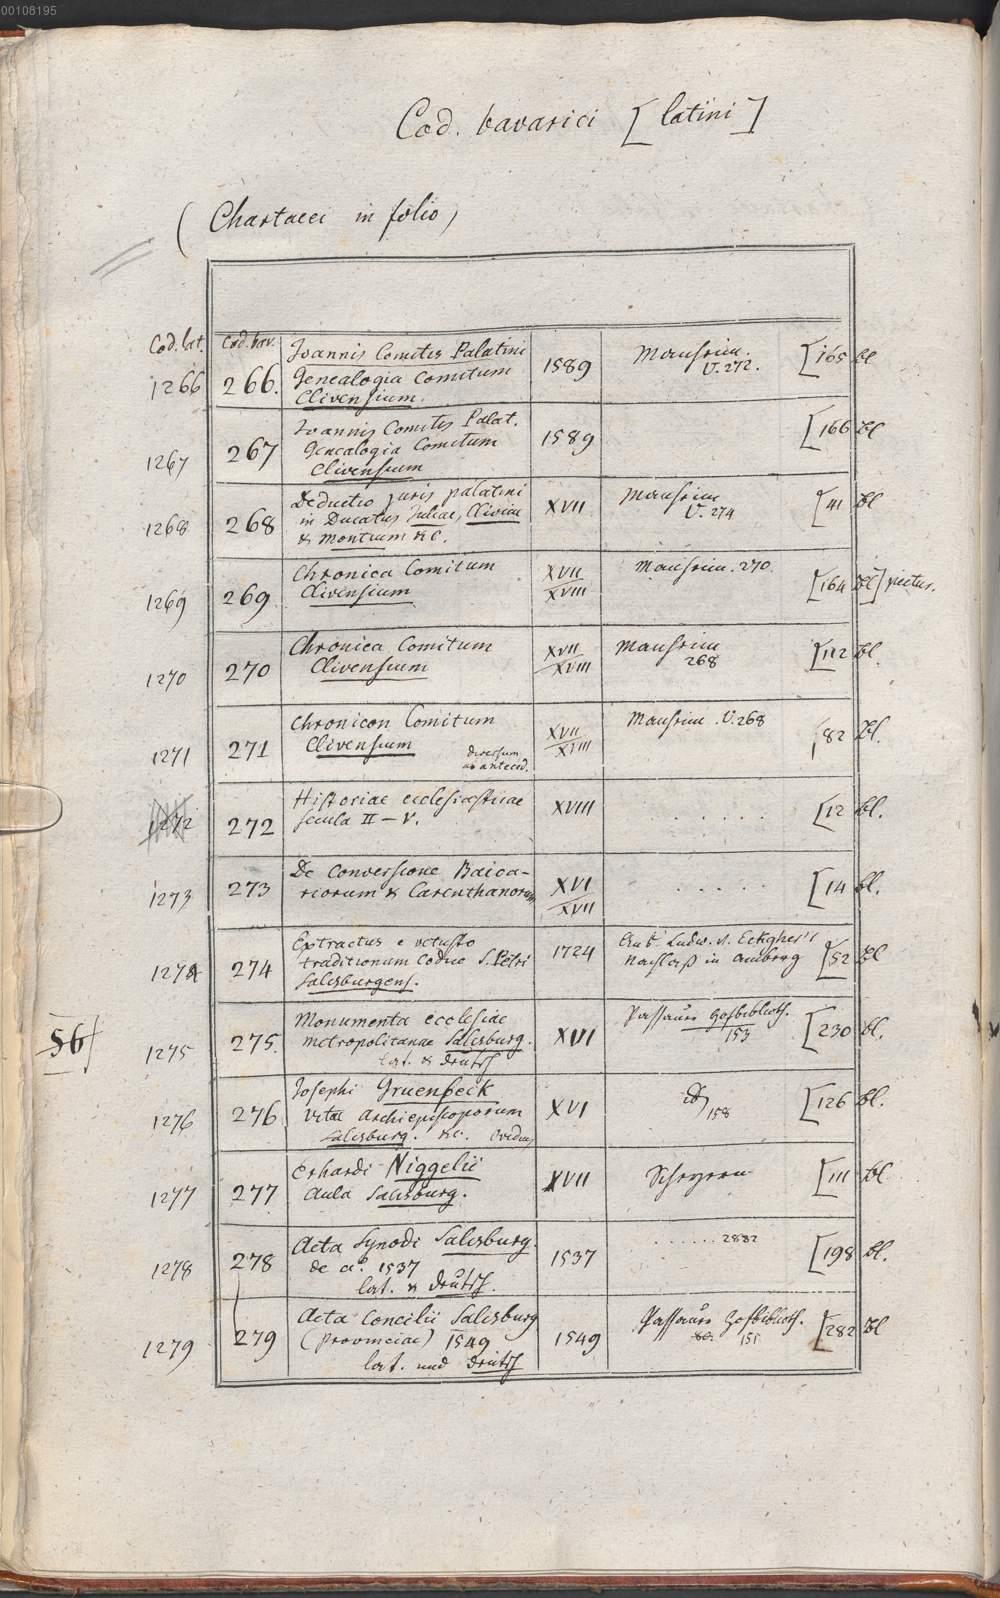 00108195
Cod. bavarici [latini]
(Chartacei in folio)
Cod. lat. Cod. bav. Joannis Comitis Palatini
1266 266. Genealogia Comitum 1589 Mannheim. V. 272. [165 bl
Clivensium.
Joannis Comitis Palat.
1267 267 Genealogia Comitum 1589 [166 bl
Clivensium
Deductio juris palatini
1268 268 in Ducatus Juliae, Cliviae XVII Mannheim V. 274 [41 bl
& Montium &c.
Chronica Comitum
1269 269 Clivensium XVII/XVIII Mannheim. 270 [164 bl] pictus.
Chronica Comitum
1270 270 Clivensium XVII/XVIII Mannheim 268 [112 bl.
Chronicon Comitum
1271 271 Clivensium XVII/XVIII Mannheim. V. 268 [82 bl.
diversum
ab anteced.
Historiae ecclesiasticae
1272 272 secula II – V. XVIII . . . . . . [12 bl.
De Conversione Baioa-
1273 273 riorum & Carenthanorum XVI/XVII . . . . . [14 bl.
Extractus e vetusto
1274 274 traditionum Codice S. Petri 1724 Aus Ludw. v. Nachlaß in Amberg [52 bl
Salisburgens.
Monumenta ecclesiae
56f
1275 275. metropolitanae Salisburg. XVI Passauer Hofbiblioth. 153 [230 bl.
lat. & deutsch
Josephi Gruenbeck
1276 276 Vitae Archiepiscoporum XVI id 158 [126 bl.
Salisburg. &c.
Erhardi Niggelii
1277 277 Aula Salisburg. XVII Scheyern [111 bl
Acta Synodi Salisburg.
1278 278 de aº. 1537 1537 . . . . . . 2882 [198 bl.
lat. & deutsch.
Acta Concilii Salisburg
1279 279 (provinciae) 1549 1549 Passauer Hofbiblioth. 151 [282 bl
lat. und deutsch